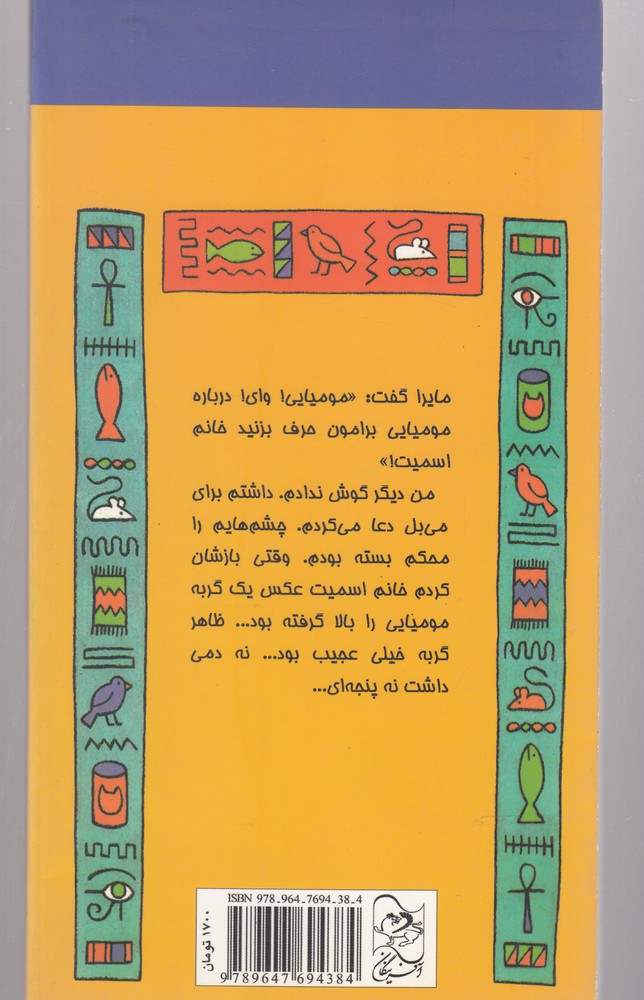 مایرا گفت: «مومیایی! وای! درباره
مومیایی برامون حرف بزنید خانم
اسمیت!»
من دیگر گوش ندادم. داشتم برای
می‌بل دعا می‌کردم. چشم‌هایم را
محکم بسته بودم. وقتی بازشان
کردم خانم اسمیت عکس یک گربه
مومیایی را بالا گرفته بود... ظاهر
گربه خیلی عجیب بود... نه دمی
داشت نه پنجه‌ای...
ISBN 978-964-7694-38-4
9 789647 694384
۱۷۰۰ تومان
آفرینگان